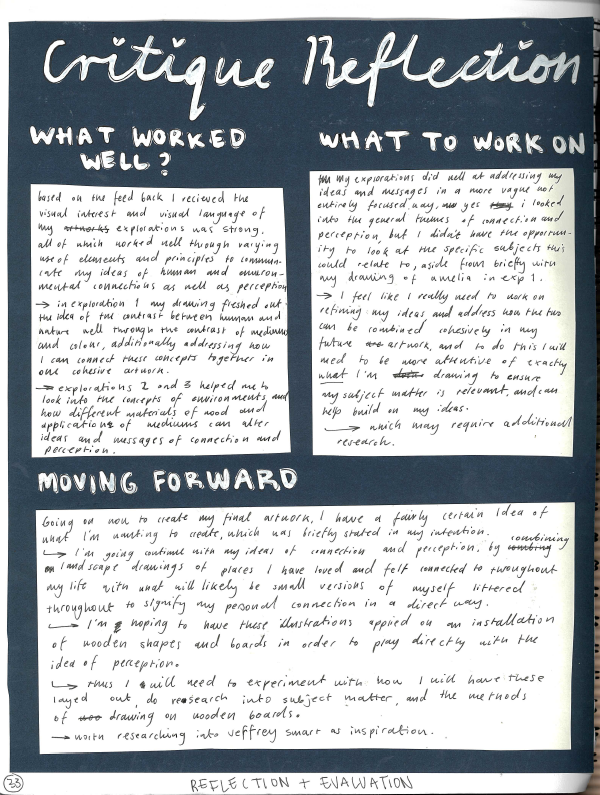 Critique Reflection
WHAT WORKED
WELL?
based on the feed back I recieved the
visual interest and visual language of
my artworks explorations was strong.
all of which worked well through varying
use of elements and principles to commun-
icate my ideas of human and environ-
mental connections as well as perception
→ in exploration 1 my drawing fleshed out
the idea of the contrast between human and
nature well through the contrast of mediums
and colour, additionally addressing how
I can connect these concepts together in
one cohesive artwork.
→ explorations 2 and 3 helped me to
look into the concepts of environments and
how different materials of wood and
applications of mediums can alter
ideas and messages of connection and
perception.
WHAT TO WORK ON
my explorations did well at addressing my
ideas and messages in a more vague not
entirely focused way, yes i looked
into the general themes of connection and
perception, but I didn't have the opportun-
ity to look at the specific subjects this
could relate to, aside from briefly with
my drawing of amelia in exp 1.
→ I feel like I really need to work on
refining my ideas and address how the two
can be combined cohesively in my
future artwork, and to do this I will
need to be more attentive of exactly
what I'm drawing to ensure
my subject matter is relevant, and can
help build on my ideas.
→ which may require additional
research.
MOVING FORWARD
Going on now to create my final artwork, I have a fairly certain idea of
what I'm wanting to create, which was briefly stated in my intention.
→ I'm going continue with my ideas of connection and perception, by combining
landscape drawings of places I have loved and felt connected to throughout
my life with what will likely be small versions of myself littered
throughout to signify my personal connection in a direct way.
→ I'm hoping to have these illustrations applied on an installation
of wooden shapes and boards in order to play directly with the
idea of perception.
→ thus I will need to experiment with how I will have these
layed out, do research into subject matter, and the methods
of drawing on wooden boards.
→ worth researching into Jeffrey smart as inspiration.
33
REFLECTION + EVALUATION